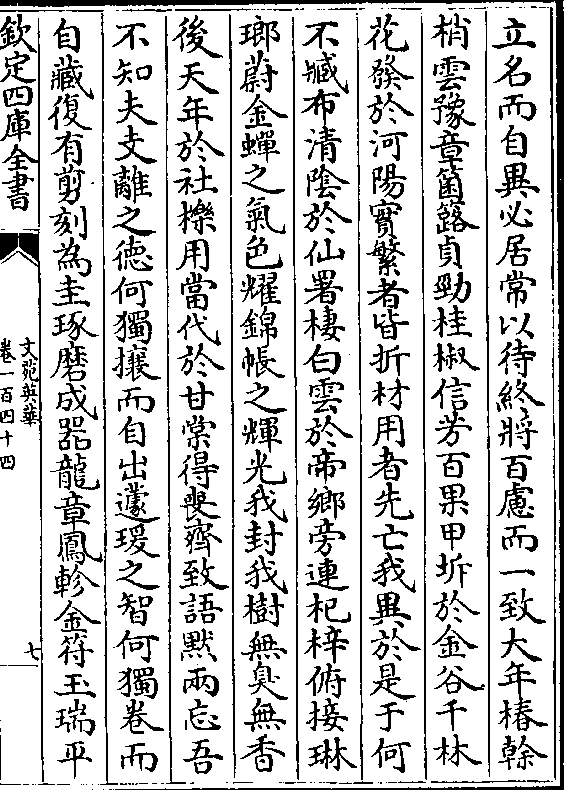 立名而自異必居常以待終將百慮而一致大年椿榦
梢雲豫章箘簬貞勁桂椒信芳百果甲坼於金谷千林
花發於河陽實繁者皆折材用者先亡我異於是于何
不臧布清陰於仙署棲白雲於帝鄉旁連杞梓俯接琳
瑯蔚金蟬之氣色耀錦帳之輝光我封我樹無臭無香
後天年於社櫟用當代於甘棠得喪齊致語黙兩忘吾
不知夫支離之德何獨攘而自出蘧瑗之智何獨卷而
自藏復有剪刻為圭琢磨成器龍章鳳軫金符玉瑞平
欽定四庫全書
文苑英華
卷一百四十四
七